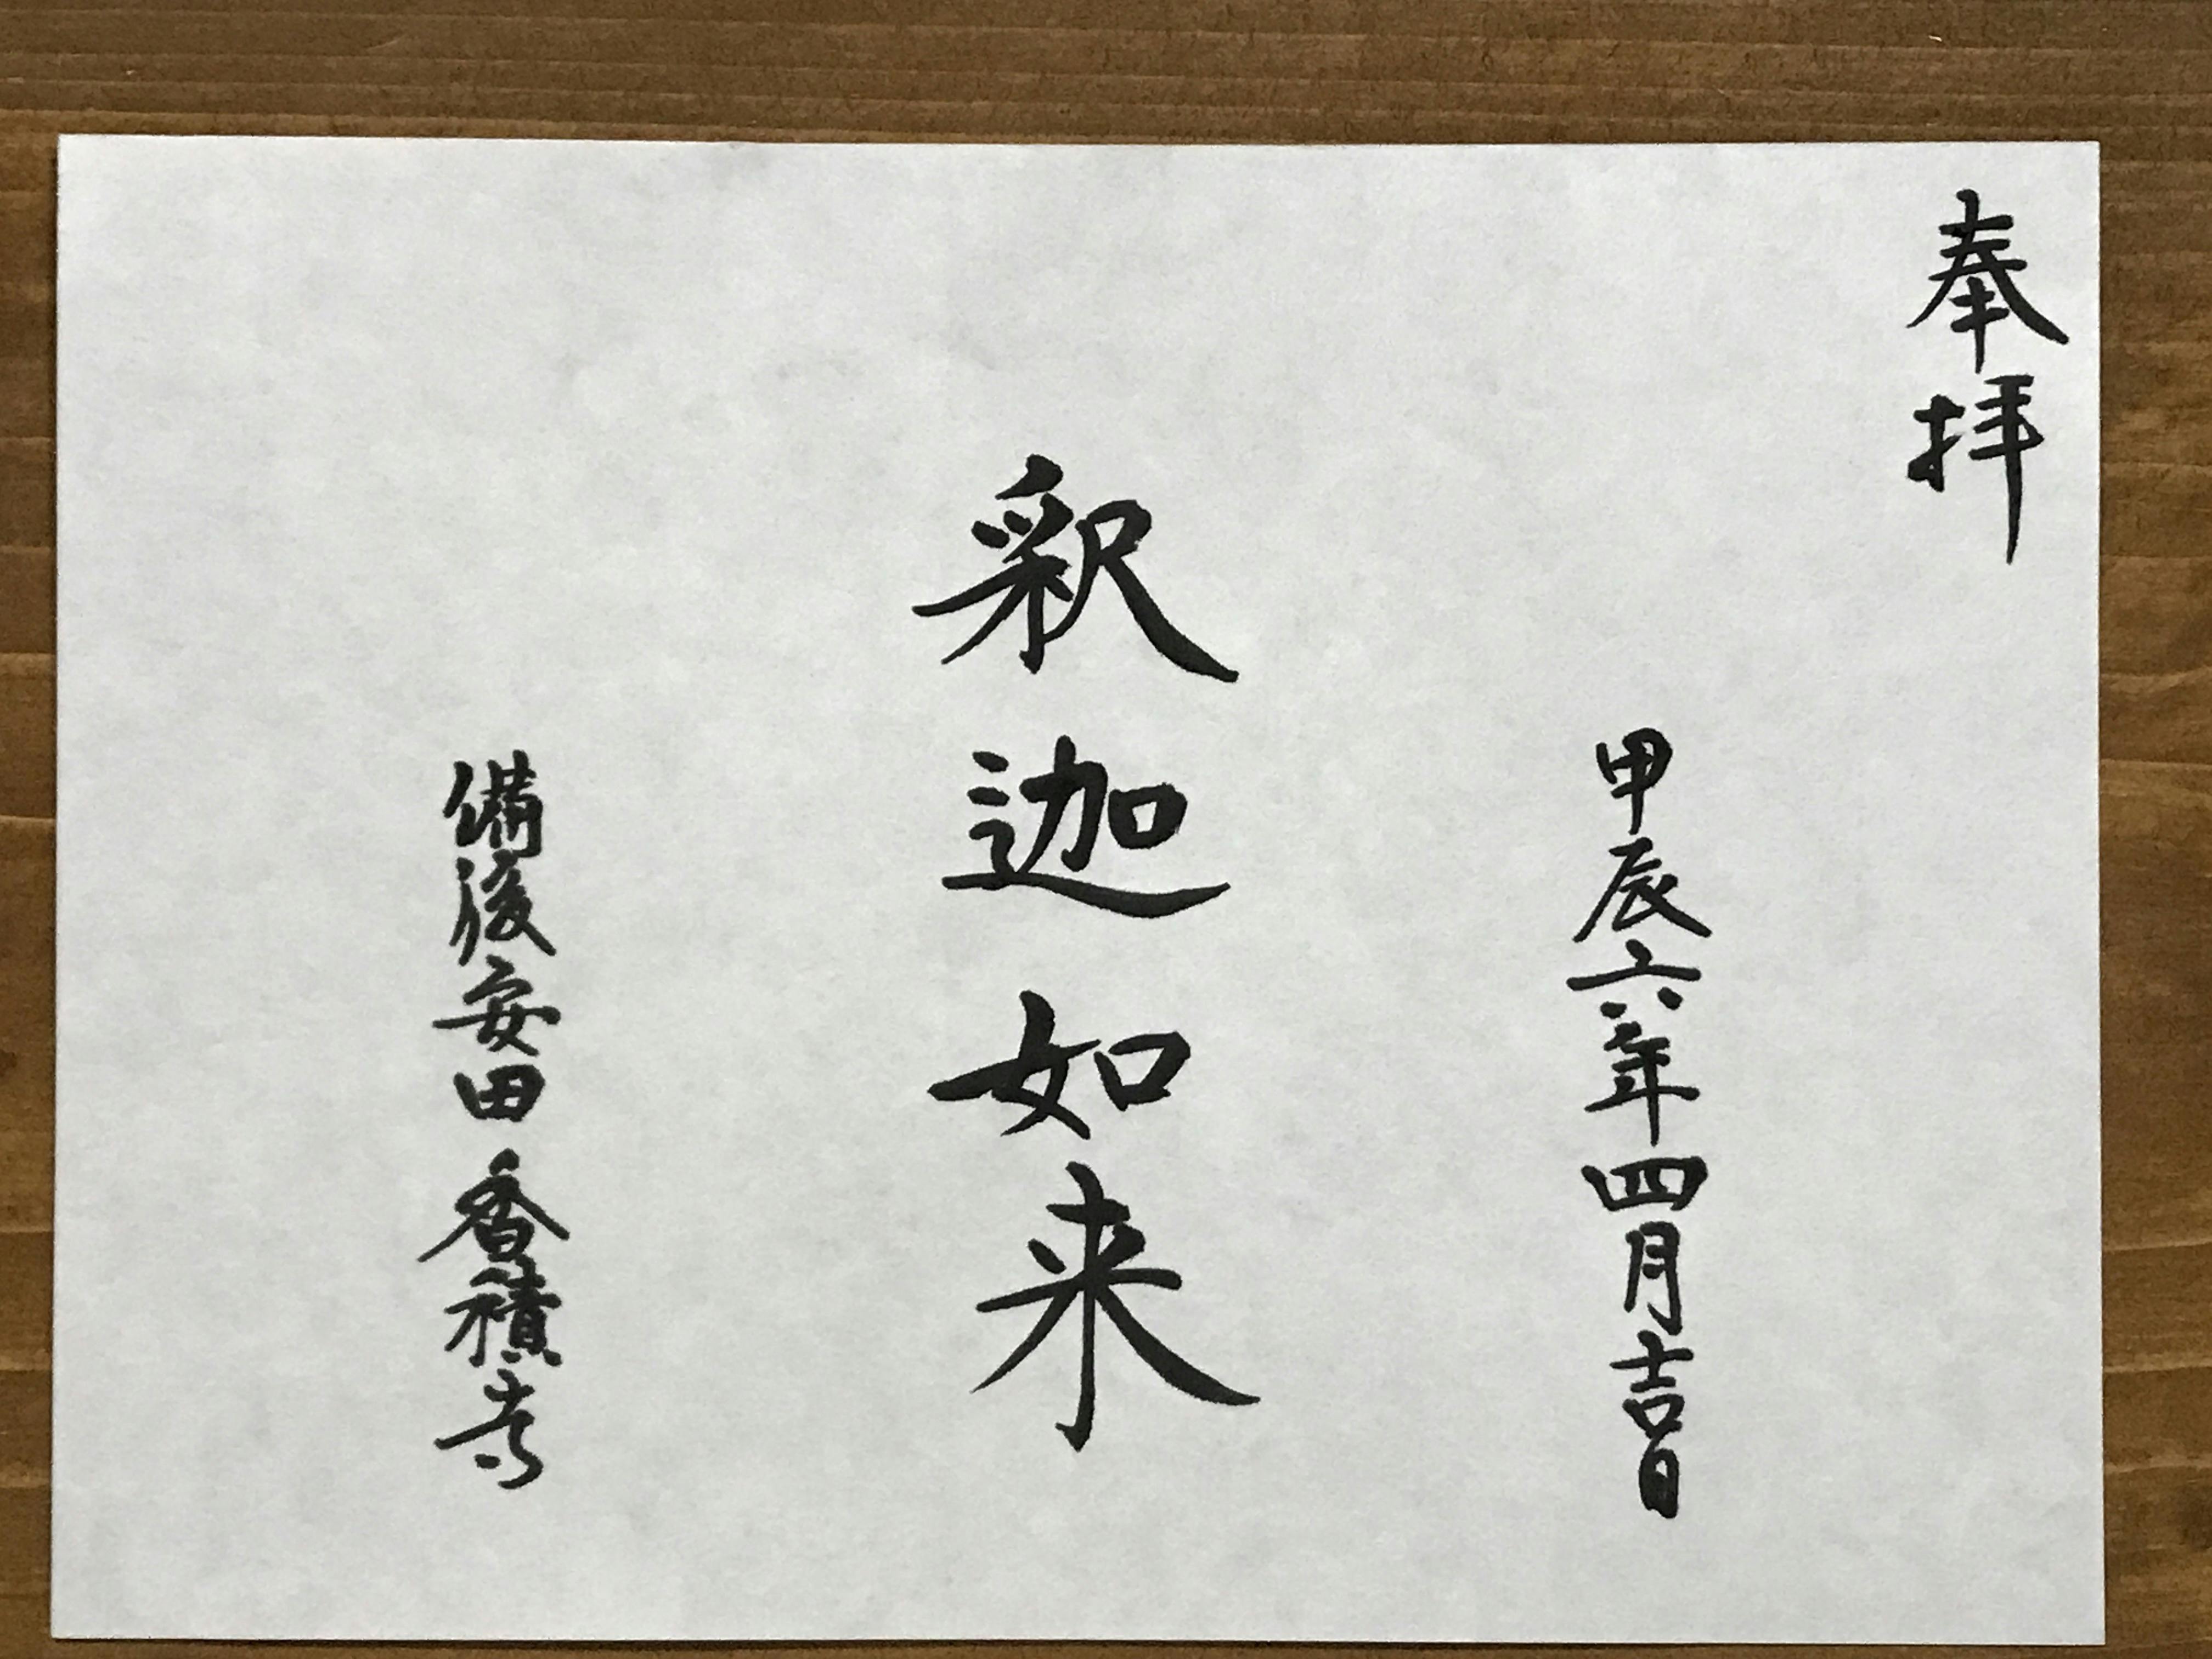 奉拝
甲辰六年四月吉日
釈迦如来
備後安田 香積寺